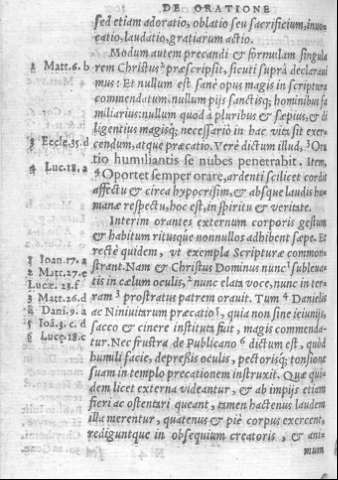 DE ORATIONE
sed etiam adoratio, oblatio seu sacrificium, inuo-
catio, laudatio, gratiarum actio.
Modum autem precandi & formulam singula
2 Matt. 6. b rem Christus ² præscripsit, sicuti suprà declaraui
mus: Et nullum est sanè opus magis in scriptura
commendatum, nullum pijs sanctisq; hominibus fa
miliarius: nullum quod à pluribus & sæpius, & di
ligentius magisq; necessariò in hac vita sit exer-
3 Eccle. 35. d cendum, atque precatio. Verè dictum illud, ³ Ora
tio humiliantis se nubes penetrabit. Item,
4 Luc. 18. a ⁴ Oportet semper orare, ardenti scilicet cordis
affectu & circa hypocrisim, & absque laudis hu-
manæ respectu, hoc est, in spiritu & veritate.
Interim orantes externum corporis gestum
& habitum ritusque nonnullos adhibent sæpe. Et
1 Ioan. 17. a rectè quidem, vt exempla Scripturæ common-
2 Matt. 27. e strant. Nam & Christus Dominus nunc ¹ subleua-
Lucæ. 23. f tis in cælum oculis, ² nunc elata voce, nunc in ter-
3 Matt. 26. d ram ³ prostratus patrem orauit. Tum ⁴ Danielis
4 Dani. 9. a ac Niniuitarum precatio ⁵, quia non sine ieiunijs,
5 Ioā. 3. c. d sacco & cinere instituta fuit, magis commenda-
6 Luc. 18. c tur. Nec frustra de Publicano ⁶ dictum est, quòd
humili facie, depressis oculis, pectorisq; tonsione
suam in templo precationem instruxit. Quæ qui-
dem licet externa videantur, & ab impijs etiam
fieri ac ostentari queant, tamen hactenus laudem
illa merentur, quatenus & piè corpus exercent,
rediguntque in obsequium creatoris, & ani-
mum